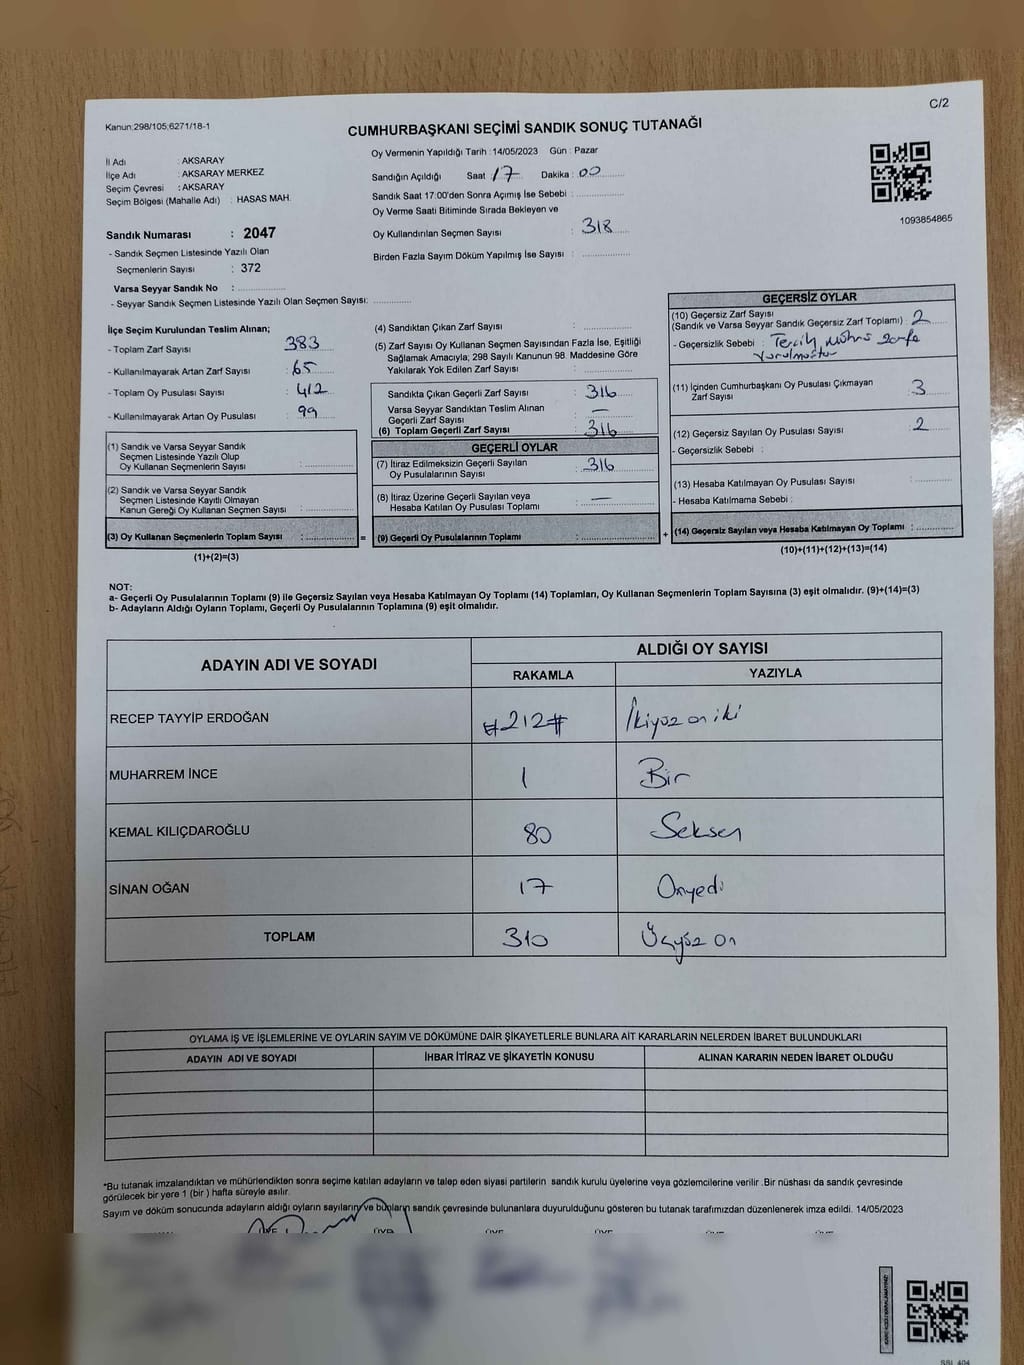 C/2
Kanun:298/105;6271/18-1
CUMHURBAŞKANI SEÇİMİ SANDIK SONUÇ TUTANAĞI
İl Adı : AKSARAY
İlçe Adı : AKSARAY MERKEZ
Seçim Çevresi : AKSARAY
Seçim Bölgesi (Mahalle Adı) : HASAS MAH.
Oy Vermenin Yapıldığı Tarih : 14/05/2023 Gün : Pazar
Sandığın Açıldığı Saat : 17 Dakika : 00
Sandık Saat 17:00'den Sonra Açımış İse Sebebi :
Oy Verme Saati Bitiminde Sırada Bekleyen ve
Oy Kullandırılan Seçmen Sayısı : 318
Birden Fazla Sayım Döküm Yapılmış İse Sayısı :
1093854865
Sandık Numarası : 2047
- Sandık Seçmen Listesinde Yazılı Olan
Seçmenlerin Sayısı : 372
Varsa Seyyar Sandık No :
- Seyyar Sandık Seçmen Listesinde Yazılı Olan Seçmen Sayısı:
İlçe Seçim Kurulundan Teslim Alınan;
- Toplam Zarf Sayısı : 383
- Kullanılmayarak Artan Zarf Sayısı : 65
- Toplam Oy Pusulası Sayısı : 412
- Kullanılmayarak Artan Oy Pusulası : 99
(1) Sandık ve Varsa Seyyar Sandık
Seçmen Listesinde Yazılı Olup
Oy Kullanan Seçmenlerin Sayısı :
(2) Sandık ve Varsa Seyyar Sandık
Seçmen Listesinde Kayıtlı Olmayan
Kanun Gereği Oy Kullanan Seçmen Sayısı :
(3) Oy Kullanan Seçmenlerin Toplam Sayısı :
(1)+(2)=(3)
=
(4) Sandıktan Çıkan Zarf Sayısı :
(5) Zarf Sayısı Oy Kullanan Seçmen Sayısından Fazla İse, Eşitliği
Sağlamak Amacıyla; 298 Sayılı Kanunun 98. Maddesine Göre
Yakılarak Yok Edilen Zarf Sayısı :
Sandıkta Çıkan Geçerli Zarf Sayısı : 316
Varsa Seyyar Sandıktan Teslim Alınan
Geçerli Zarf Sayısı : —
(6) Toplam Geçerli Zarf Sayısı : 316
GEÇERLİ OYLAR
(7) İtiraz Edilmeksizin Geçerli Sayılan
Oy Pusulalarının Sayısı : 316
(8) İtiraz Üzerine Geçerli Sayılan veya
Hesaba Katılan Oy Pusulası Toplamı : —
(9) Geçerli Oy Pusulalarının Toplamı :
+
GEÇERSİZ OYLAR
(10) Geçersiz Zarf Sayısı
(Sandık ve Varsa Seyyar Sandık Geçersiz Zarf Toplamı) : 2
- Geçersizlik Sebebi : Tercih mührü zarfa
vurulmuştur
(11) İçinden Cumhurbaşkanı Oy Pusulası Çıkmayan
Zarf Sayısı : 3
(12) Geçersiz Sayılan Oy Pusulası Sayısı : 2
- Geçersizlik Sebebi :
(13) Hesaba Katılmayan Oy Pusulası Sayısı :
- Hesaba Katılmama Sebebi :
(14) Geçersiz Sayılan veya Hesaba Katılmayan Oy Toplamı :
(10)+(11)+(12)+(13)=(14)
NOT:
a- Geçerli Oy Pusulalarının Toplamı (9) ile Geçersiz Sayılan veya Hesaba Katılmayan Oy Toplamı (14) Toplamları, Oy Kullanan Seçmenlerin Toplam Sayısına (3) eşit olmalıdır. (9)+(14)=(3)
b- Adayların Aldığı Oyların Toplamı, Geçerli Oy Pusulalarının Toplamına (9) eşit olmalıdır.
ADAYIN ADI VE SOYADI
ALDIĞI OY SAYISI
RAKAMLA YAZIYLA
RECEP TAYYİP ERDOĞAN #212# İkiyüz on iki
MUHARREM İNCE 1 Bir
KEMAL KILIÇDAROĞLU 80 Seksen
SİNAN OĞAN 17 Onyedi
TOPLAM 310 Üçyüz on
OYLAMA İŞ VE İŞLEMLERİNE VE OYLARIN SAYIM VE DÖKÜMÜNE DAİR ŞİKAYETLERLE BUNLARA AİT KARARLARIN NELERDEN İBARET BULUNDUKLARI
ADAYIN ADI VE SOYADI İHBAR İTİRAZ VE ŞİKAYETİN KONUSU ALINAN KARARIN NEDEN İBARET OLDUĞU
*Bu tutanak imzalandıktan ve mühürlendikten sonra seçime katılan adayların ve talep eden siyasi partilerin sandık kurulu üyelerine veya gözlemcilerine verilir .Bir nüshası da sandık çevresinde
görülecek bir yere 1 (bir ) hafta süreyle asılır.
Sayım ve döküm sonucunda adayların aldığı oyların sayılarını ve bunların sandık çevresinde bulunanlara duyurulduğunu gösteren bu tutanak tarafımızdan düzenlenerek imza edildi. 14/05/2023